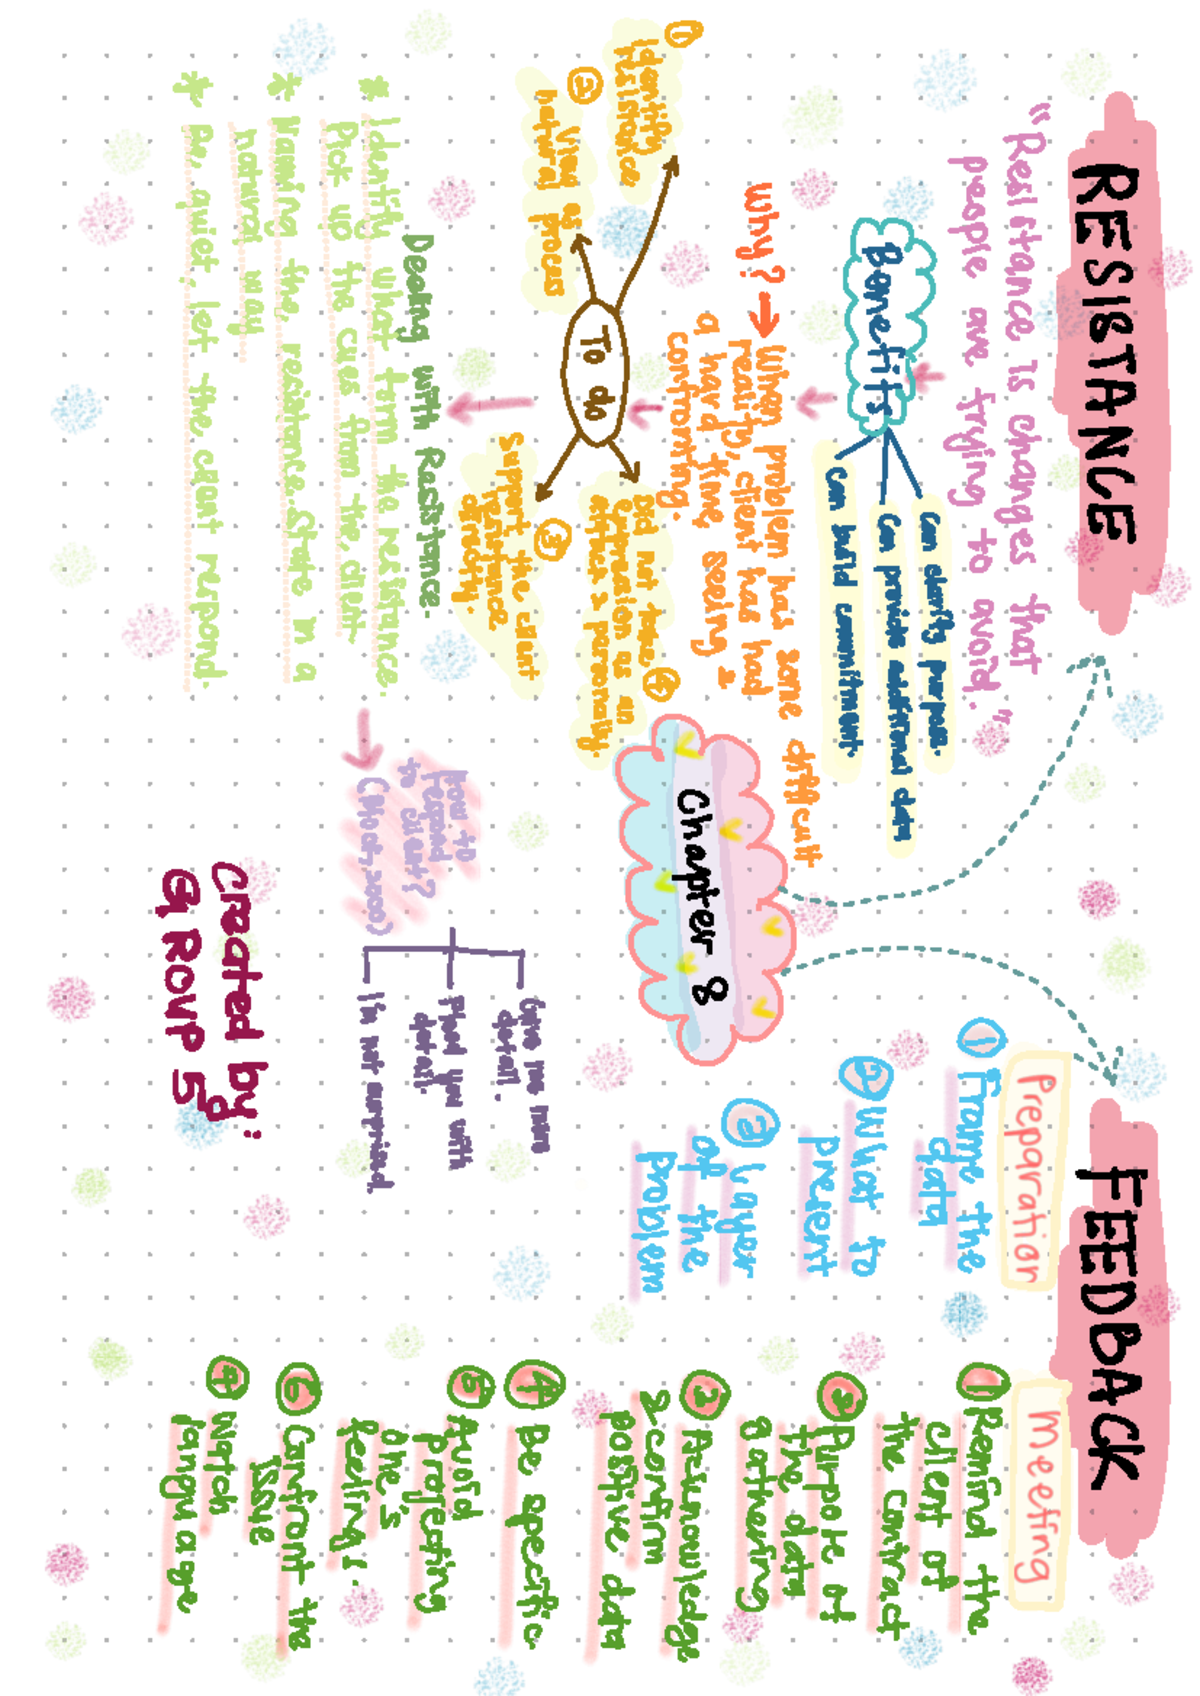 RESISTANCE
"Resistance is changes that
people are trying to avoid."
Benefits
Can clarify purpose.
Can provide additional data
Can build commitment.
Why? → When problem has some difficult
reality, client has had
a hard time seeing &
confronting.
To do
① Identify
resistance
② View as
natural process
③ Support the client
resistance
directly.
④ Did not take
expression as an
attacks personally.
Dealing with Resistance.
* Identify what form the resistance.
Pick up the cues from the client.
* Naming the resistance. State in a
natural way
* Be quiet, let the client respond.
how to
respond
to client?
(Block, 2000)
Give me more
detail.
Flood you with
detail.
I'm not surprised.
Created by:
GROUP 5
Chapter 8
FEEDBACK
Preparation
① Frame the
data
② What to
present
③ Layer
of the
problem
Meeting
① Remind the
client of
the contract
② Purpose of
the data
gathering
③ Acknowledge
& confirm
positive data
④ Be specific.
⑤ Avoid
projecting
one's
feelings.
⑥ Confront the
issue
⑦ Watch
language